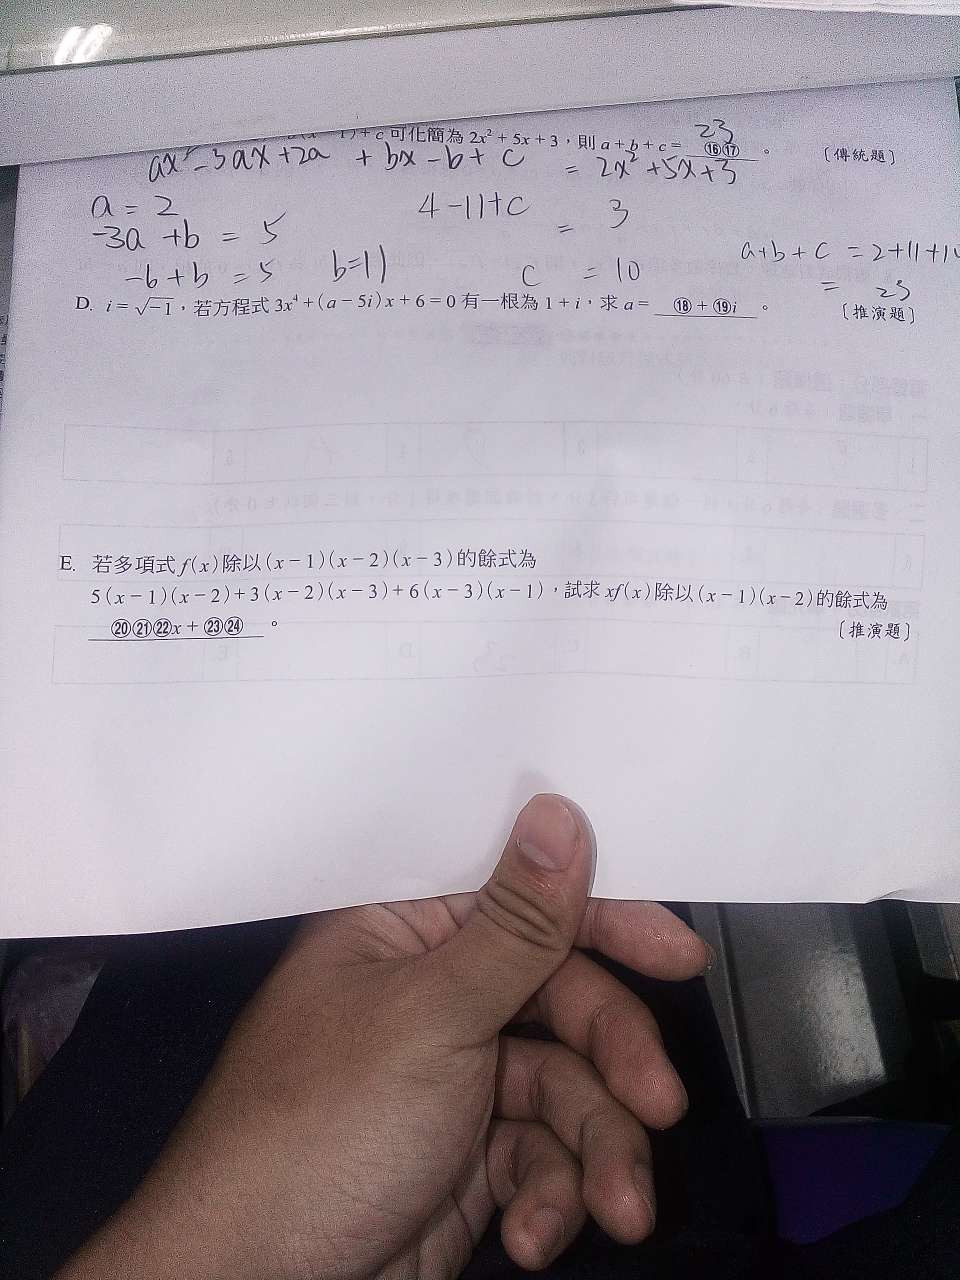 1)+c可化簡為2x²+5x+3,則a+b+c= 23 ⑯⑰ 。 〔傳統題〕
ax²-3ax+2a +bx-b+c = 2x²+5x+3
a=2 4-11+c = 3
-3a+b=5 a+b+c=2+11+10
-6+b=5 b=11 c = 10 = 23
D. i=√-1,若方程式3x⁴+(a-5i)x+6=0有一根為1+i,求a= ⑱+⑲i 。 〔推演題〕
E. 若多項式f(x)除以(x-1)(x-2)(x-3)的餘式為
5(x-1)(x-2)+3(x-2)(x-3)+6(x-3)(x-1),試求xf(x)除以(x-1)(x-2)的餘式為
⑳㉑㉒x+㉓㉔ 。 〔推演題〕